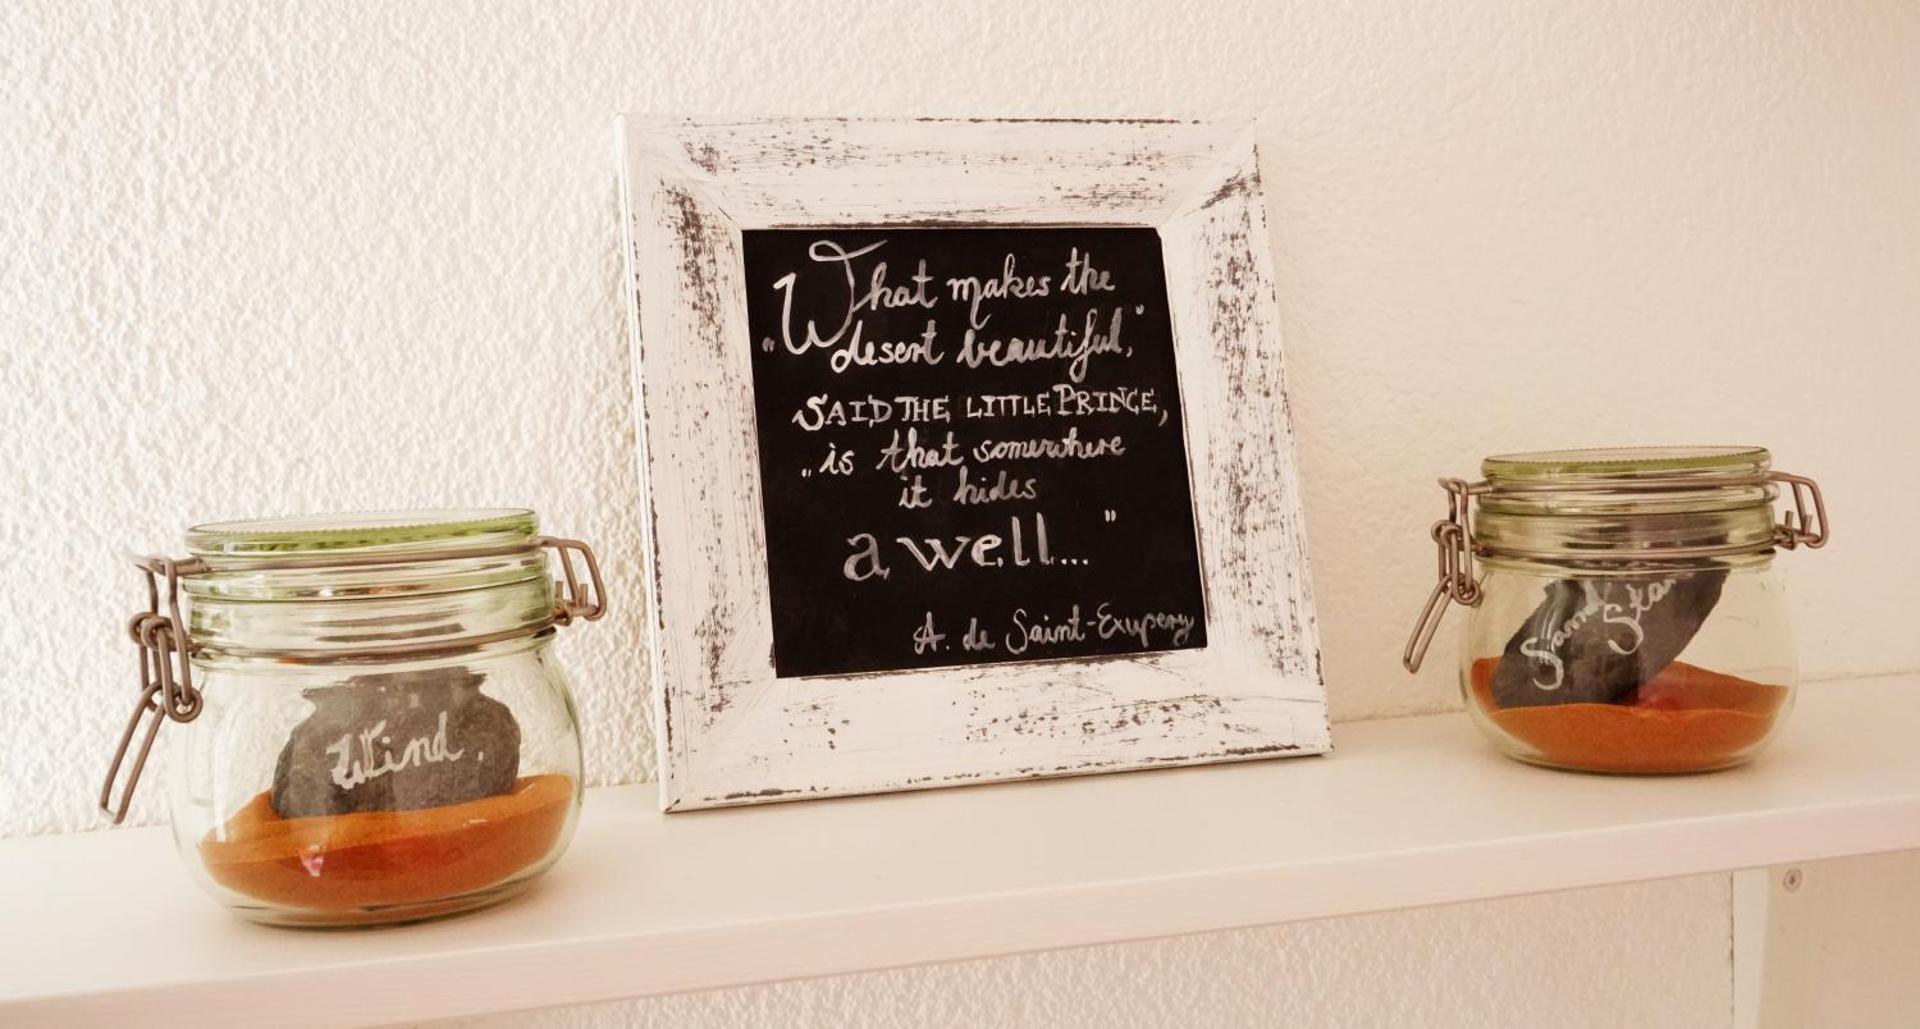 „What makes the
desert beautiful,"
SAID THE LITTLE PRINCE,
„is that somewhere
it hides
a well..."
A. de Saint-Exupery
Wind
Sand